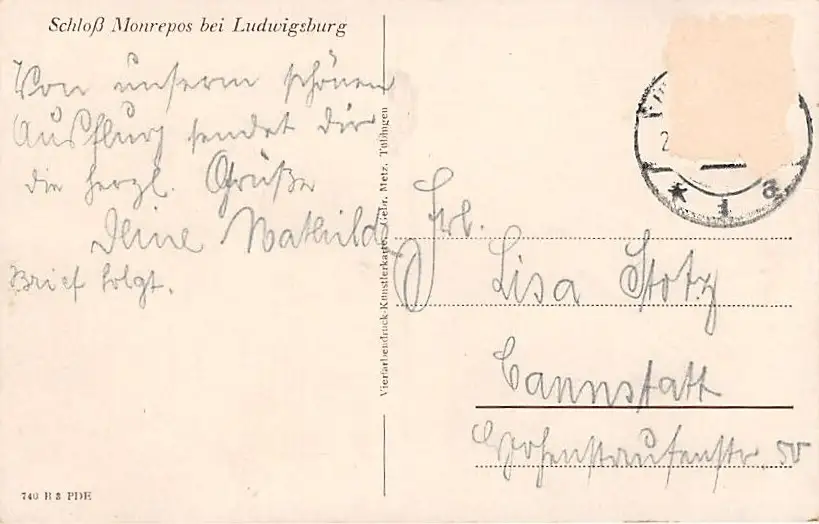 Schloß Monrepos bei Ludwigsburg
Von unserm schönen
Ausflug sendet dir
die herzl. Grüße
Deine Mathilde
Brief folgt.
Vierfarbendruck-Künstlerkarte Gebr. Metz, Tübingen
Frl.
Lisa Stotz
Cannstatt
Hohenstaufenstr. 50
740 R 8 PDE